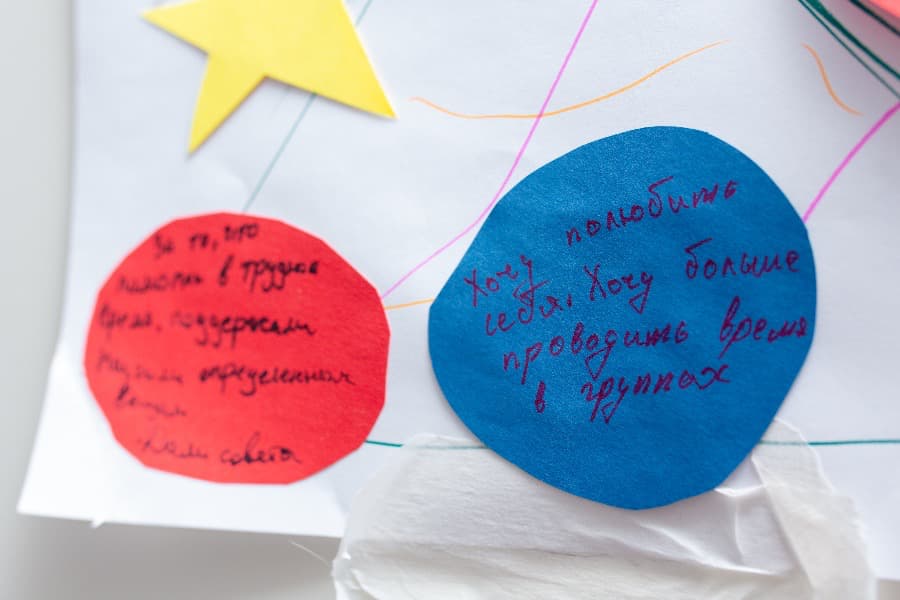 За то, что
помогли в трудное
время, поддержали
научили определенным
вещам
Дали
Хочу полюбить
себя. Хочу больше
проводить время
в группах